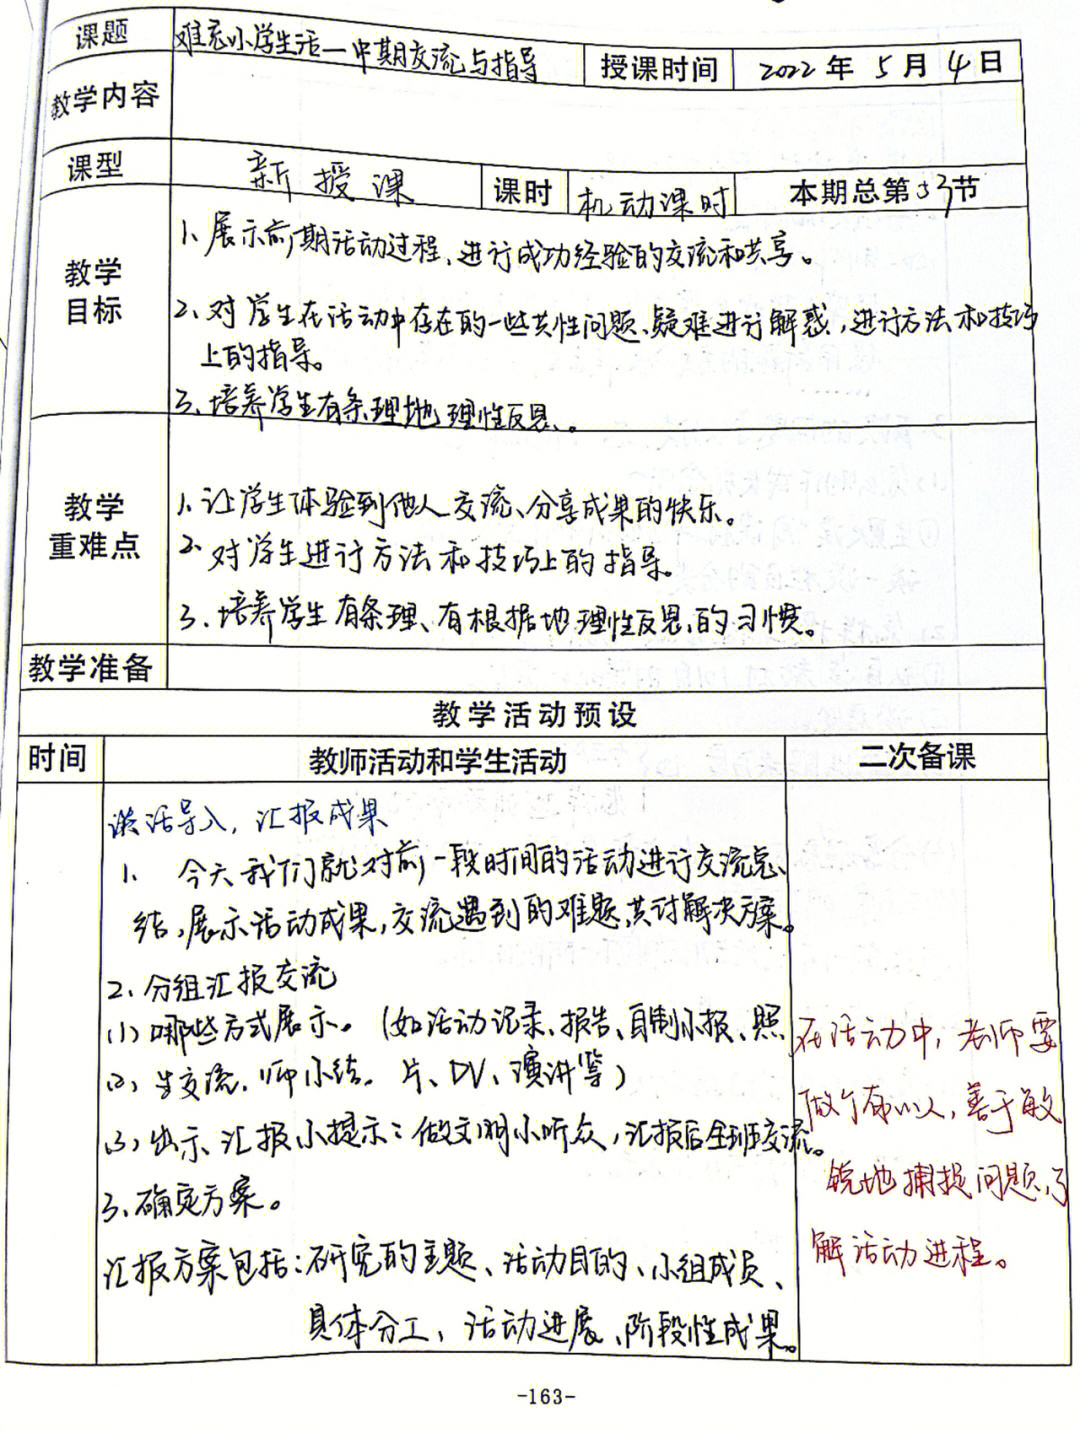 课题 难忘小学生活一中期交流与指导 授课时间 2022年5月4日
教学内容
课型 新授课 课时 机动课时 本期总第 节
教学目标
1、展示前期活动过程、进行成功经验的交流和共享。
2、对学生在活动中存在的一些共性问题、疑难进行解惑，进行方法和技巧
上的指导。
3、培养学生有条理地理性反思、。
教学重难点
1、让学生体验到他人交流、分享成果的快乐。
2、对学生进行方法和技巧上的指导。
3、培养学生有条理、有根据地理性反思的习惯。
教学准备
教学活动预设
时间 教师活动和学生活动 二次备课
谈话导入，汇报成果
1、今天我们就对前一段时间的活动进行交流总
结，展示活动成果，交流遇到的难题，共讨解决方案。
2、分组汇报交流
(1)哪些方式展示。(如活动记录、报告、自制小报、照
(2)生交流，师小结。片、DV、演讲等)
(3)出示汇报小提示：做文明小听众，汇报后全班交流。
3、确定方案。
汇报方案包括：研究的主题、活动目的、小组成员、
具体分工、活动进展、阶段性成果。
在活动中，老师要
做个有心人，善于敏
锐地捕捉问题，了
解活动进程。
-163-